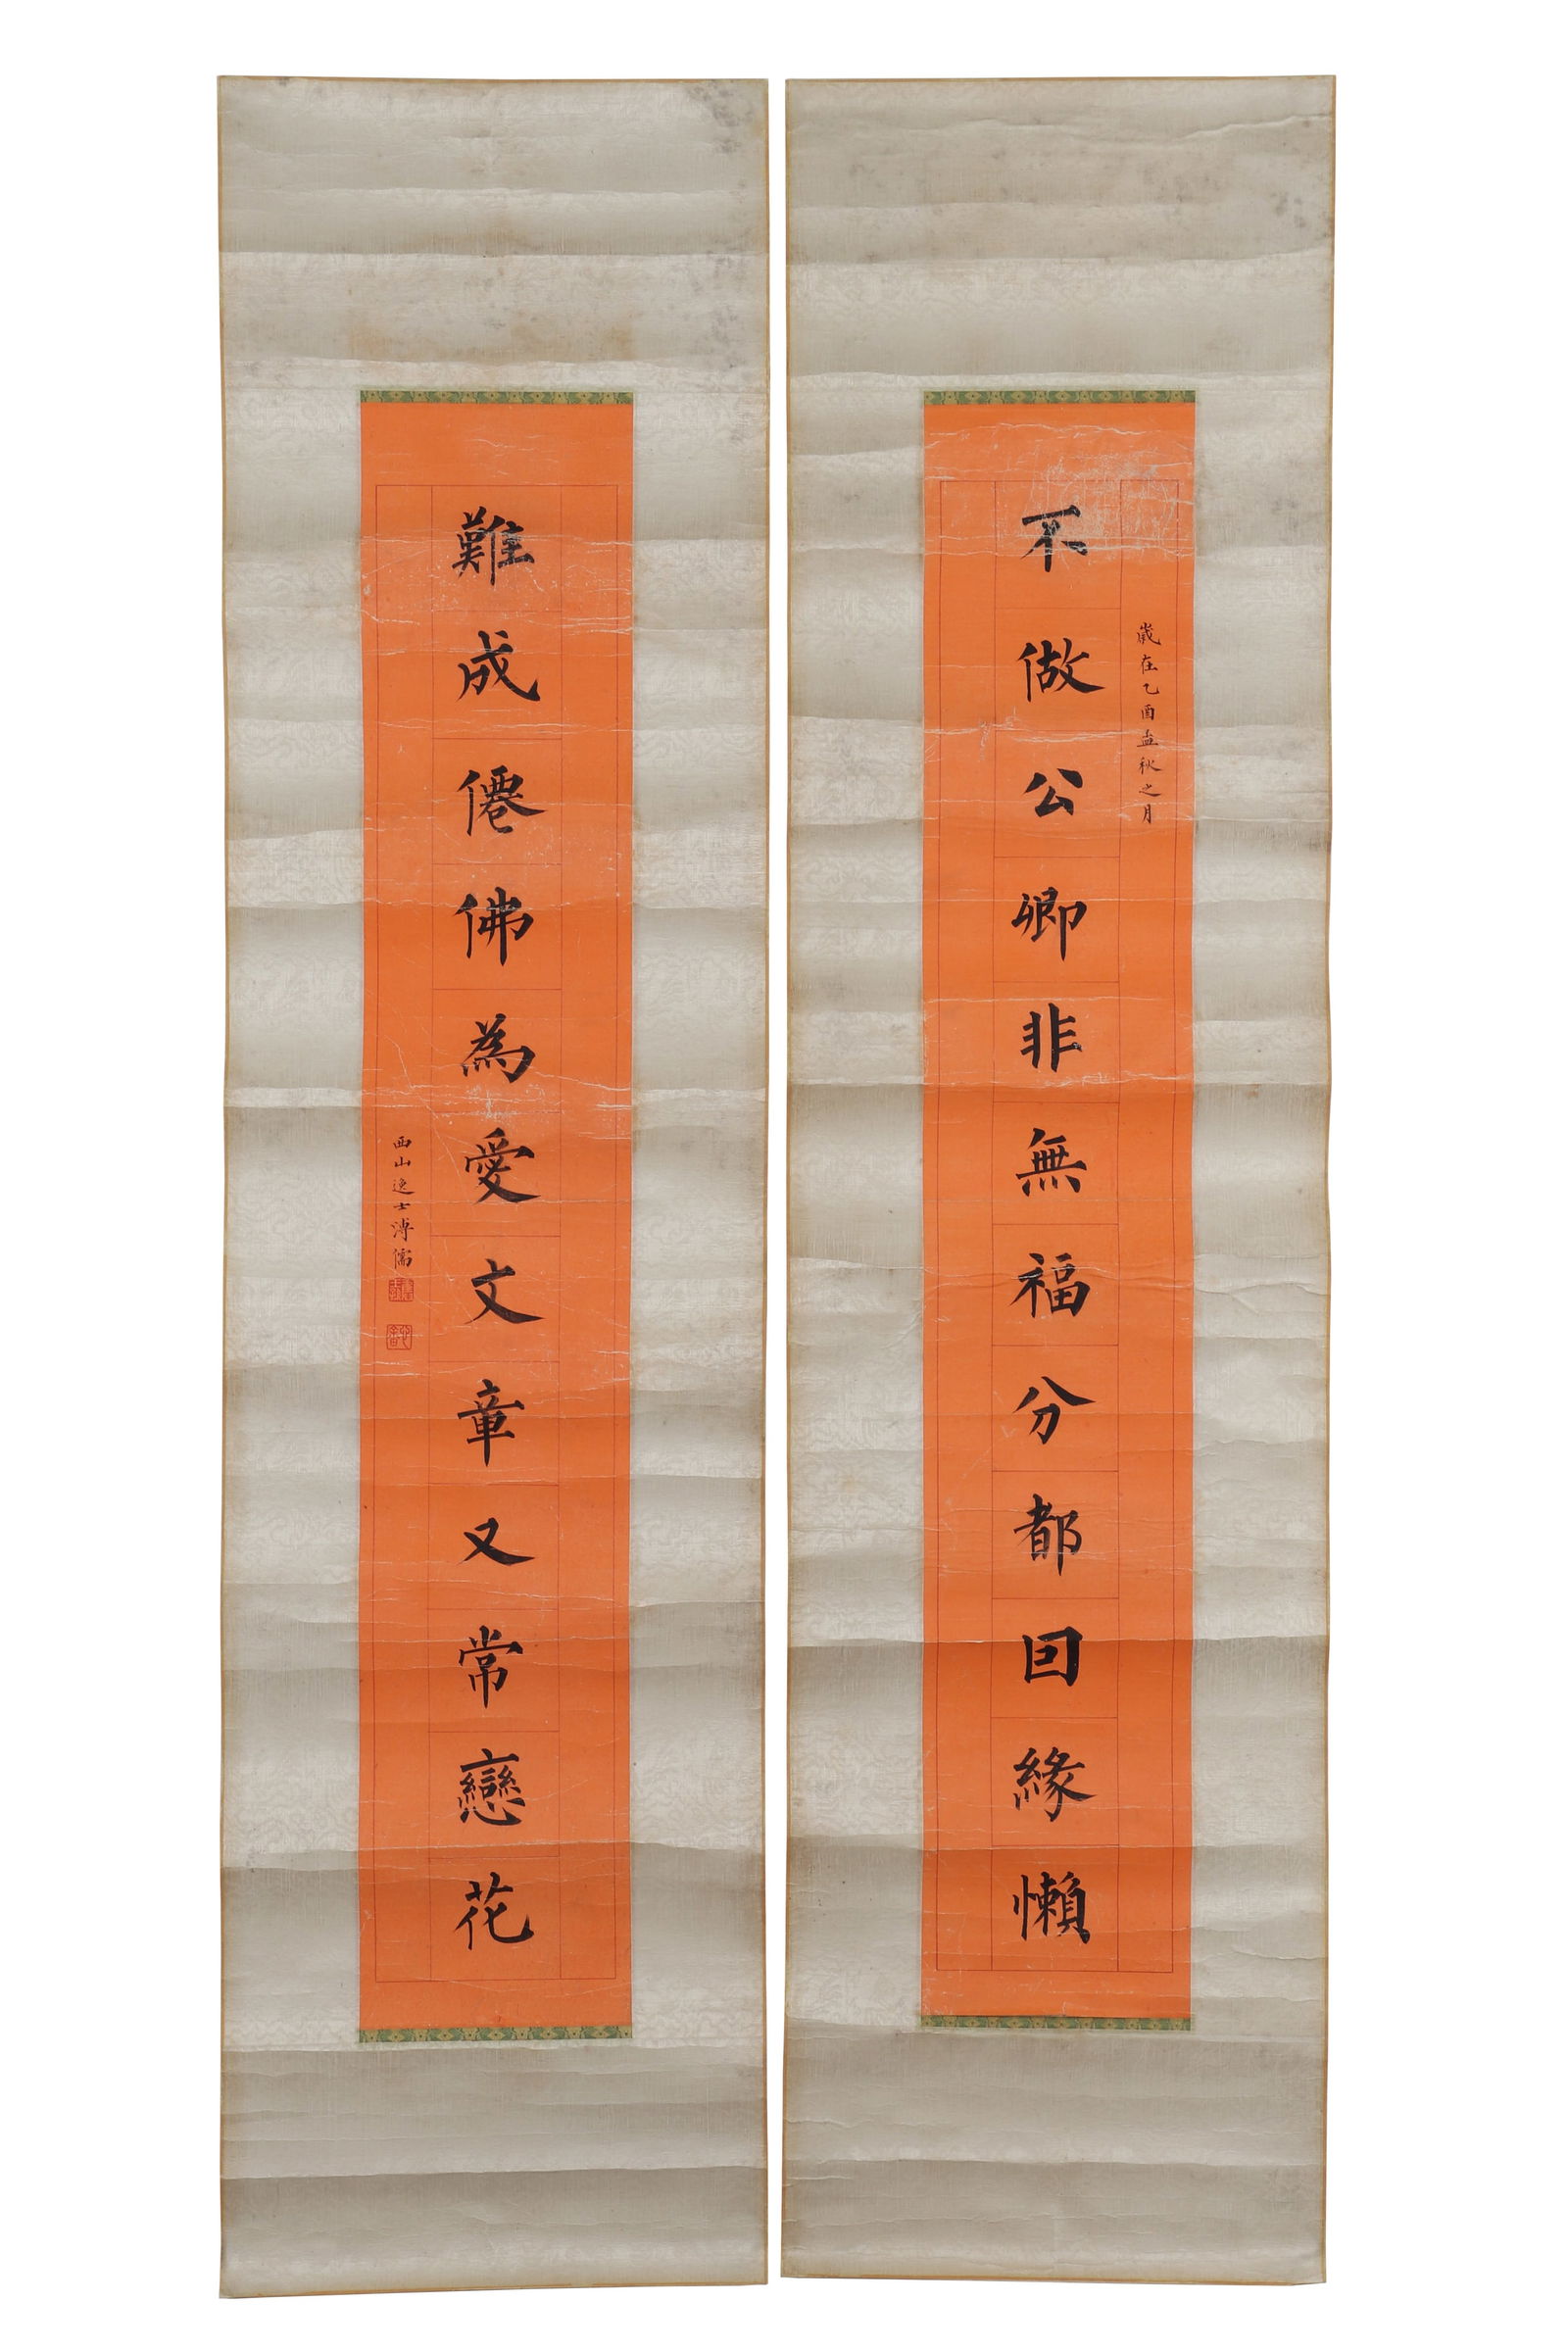 歲在乙酉孟秋之月
不做公卿非無福分都囙緣懶
難成僊佛為愛文章又常戀花
西山逸士溥儒